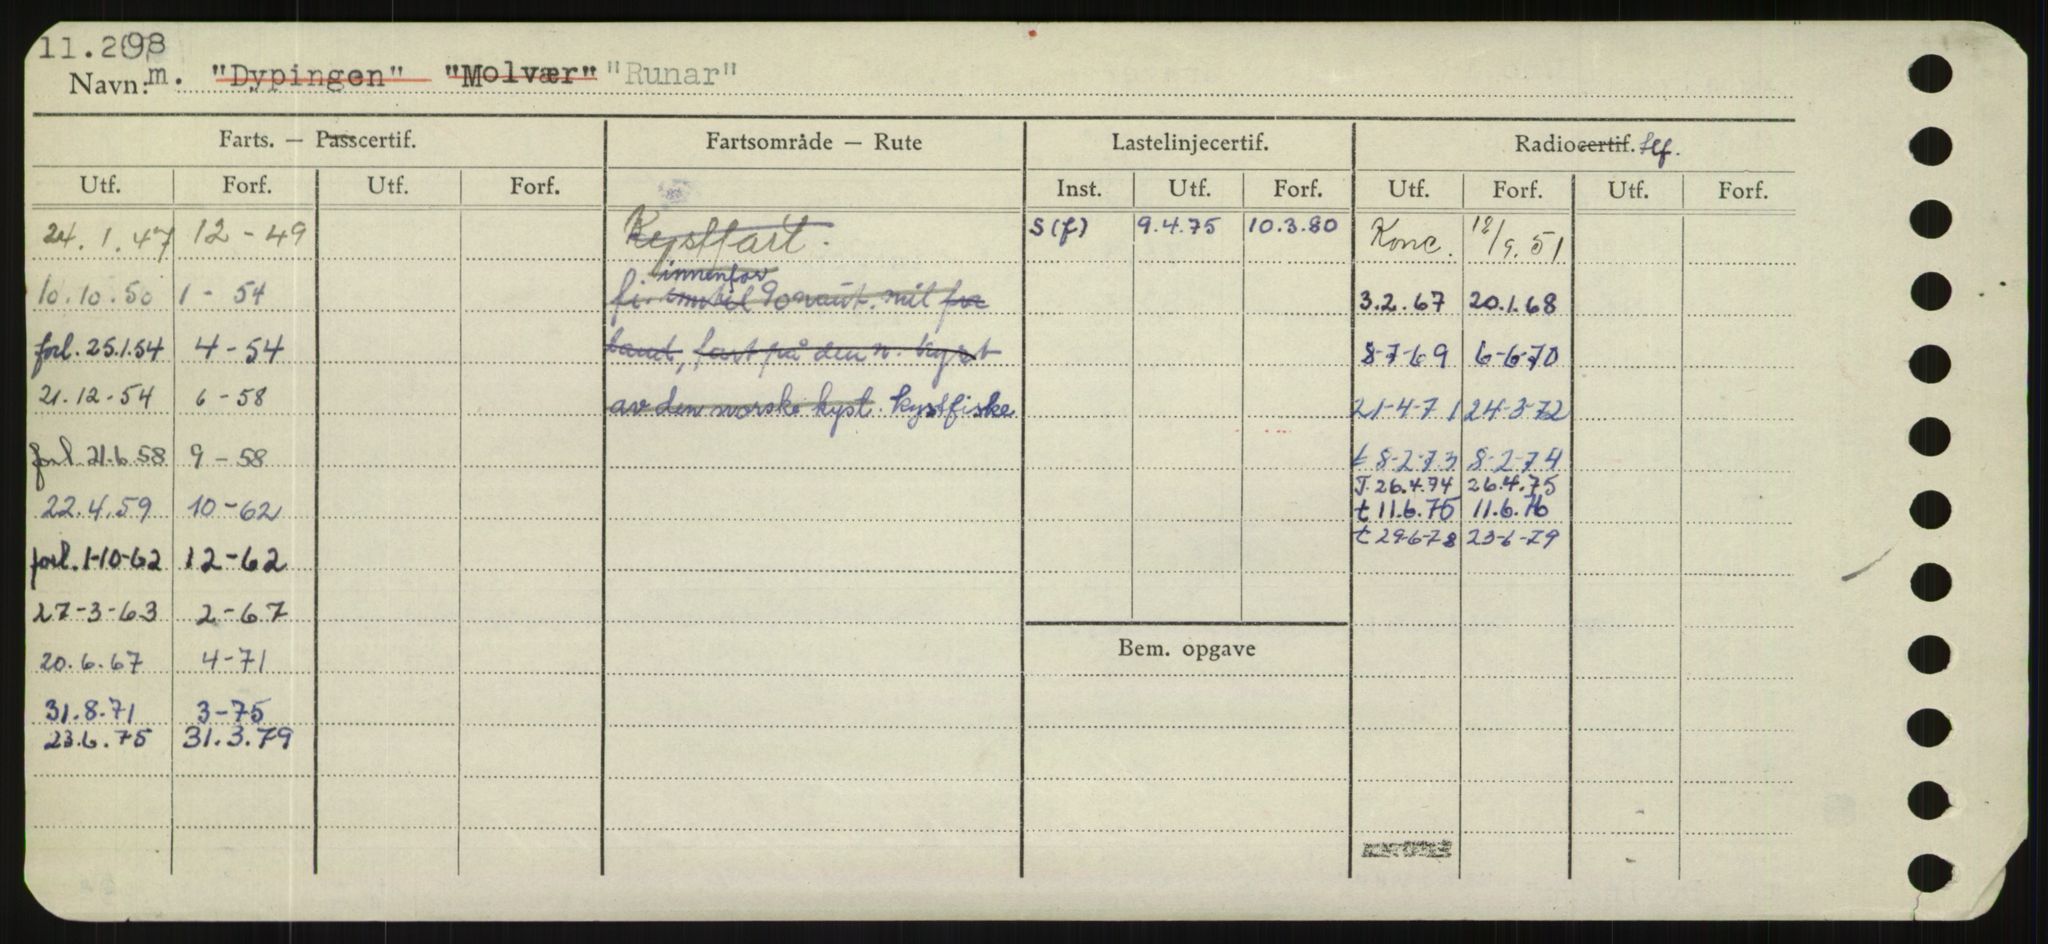 11.298
Navn: m. "Dypingen" "Molvær" "Runar"
Farts. — Passcertif. Fartsområde — Rute Lastelinjecertif. Radiocertif. tlf.
Utf. Forf. Utf. Forf. Inst. Utf. Forf. Utf. Forf. Utf. Forf.
24.1.47 12-49 Kystfart. S(f) 9.4.75 10.3.80 Konc. 12/9.51
innenfor
10.10.50 1-54 fi. inntil 90 naut. mil fra 3.2.67 20.1.68
forl. 25.1.54 4-54 land, fart på den n. kyst 8-7-69 6-6-70
21.12-54 6-58 av den norske kyst. kystfiske 21-4-71 24-3-72
forl 21.6.58 9-58 t 8-2-73 8-2-74
T. 26.4.74 26.4.75
22.4.59 10-62 t 11.6.75 11.6.76
t 29-6-78 23-6-79
forl. 1-10-62 12-62
27-3-63 2-67
Bem. opgave
20.6.67 4-71
31.8.71 3-75
23.6.75 31.3.79